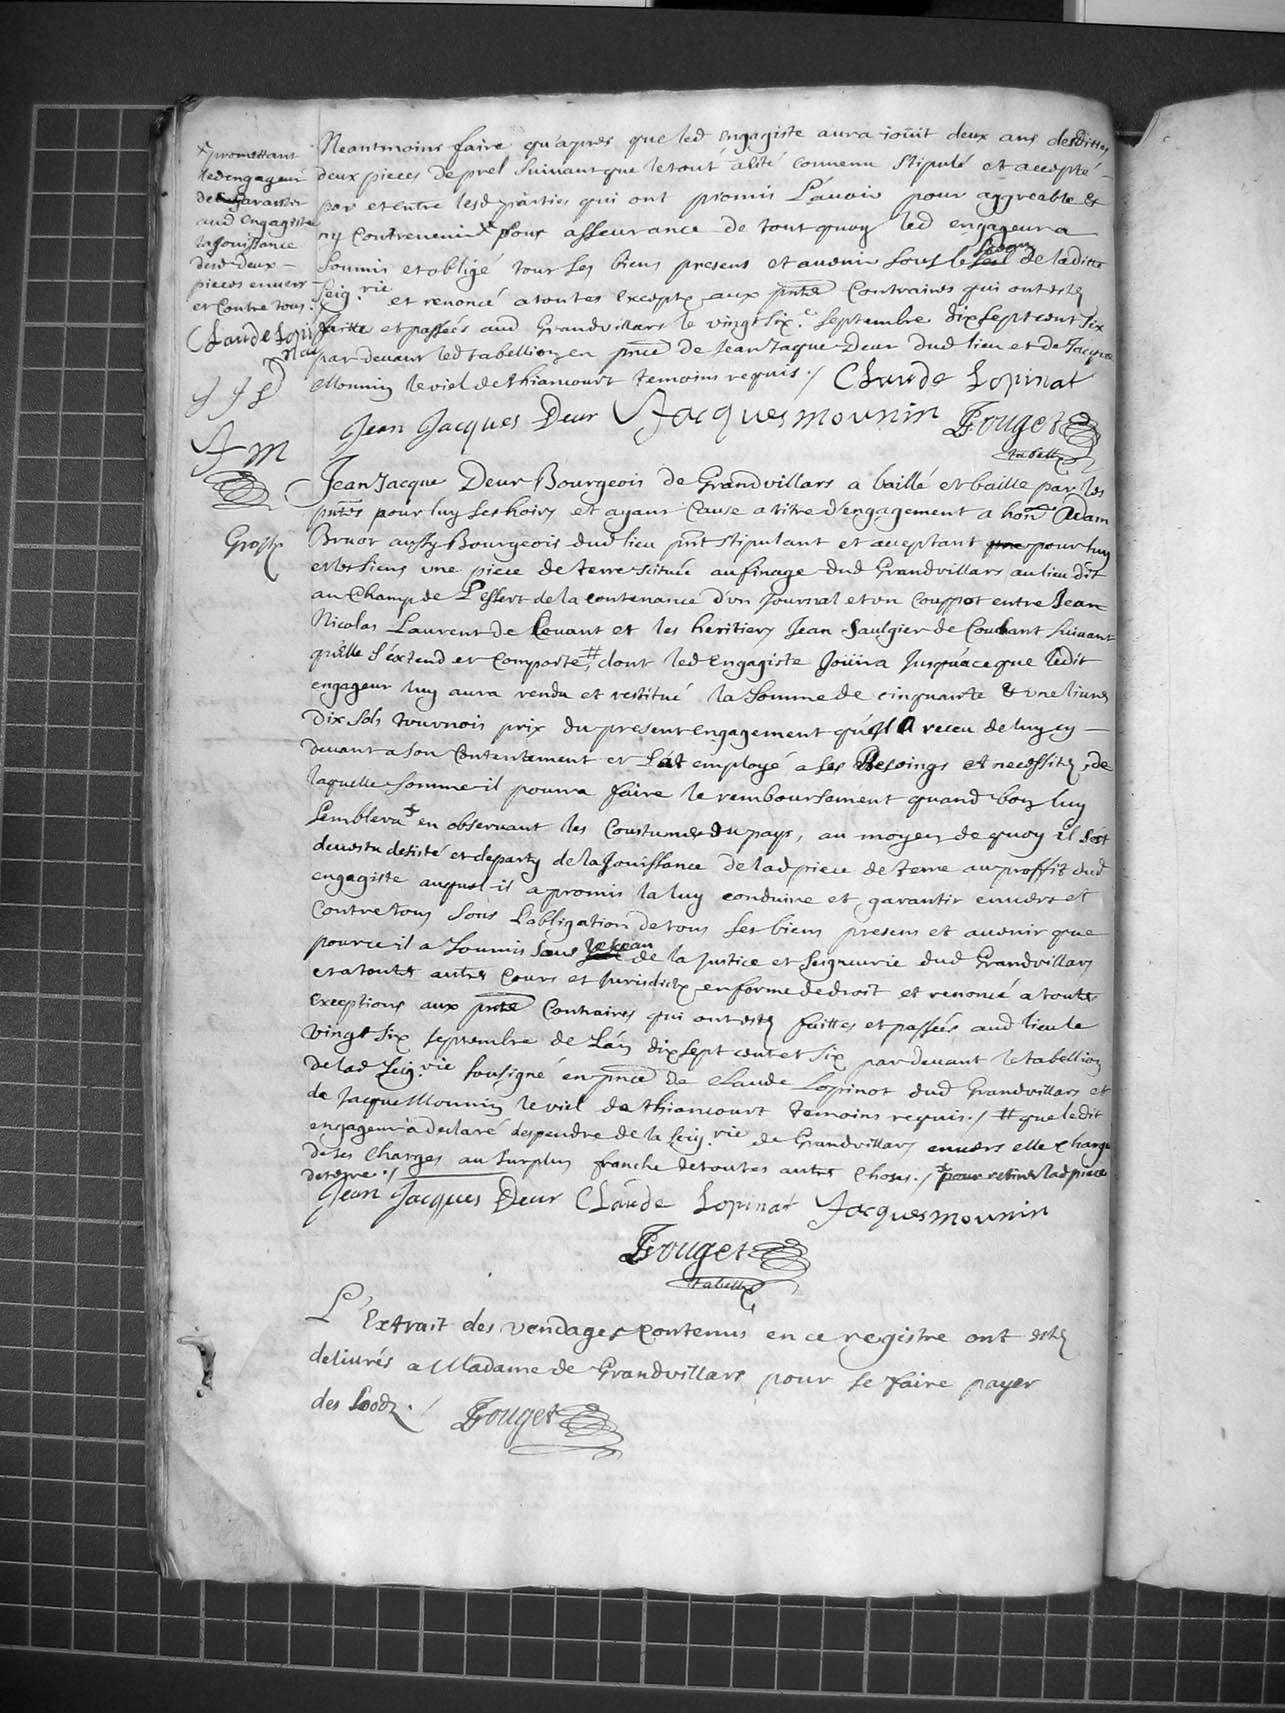 Neantmoins faire qu'apres que led engagiste aura jouit deux ans desdittes
deux pieces de prel suivant que le tout a esté convenu stipulé et accepté
par et entre lesd parties qui ont promis L'avoir pour aggreable et
ny contrevenir x pour asseurance de tout quoy led engageur a
soumis et obligé tour ses biens present et avenir sous le scel seau de laditte
Seig.rie et renoncé a toutes Except~ aux pnte~ Contraires qui ont esté
faitte et passées aud Grandvillars le vingt six.e septembre dix sept cent six
par devant led tabellion en pnce de Jean Jaque Deur dud lieu et de Jacque
Mounin le viel de thiancourt temoins requis ./ Claude Lopinat
Jean Jacques Deur Jacques mounin Fouget
tabell~
x promettant
led engageur
de garantir
aud Engagiste
la jouissance
desd deux
pieces envers
et contre tous.
Claude Lopi
nat
J J D
J m
Grosse
Jean Jacque Deur Bourgeois de Grandvillars a baillé et baille par les
pntes pour luy ses hoirs et ayant Cause a titre d'engagement a hon~ Adam
Bruot aussy Bourgeois dud lieu pnt stipulant et acceptant pour luy
et les siens une piece de terre scituée au finage dud Grandvillars au lieu dit
au Champ de L'essert de la contenance d'un journal et un Couppot entre Jean
Nicolas Laurent de Levant et les heritiers Jean Saulgier de Couchant suivant
qu'elle s'extend et Comporte,# dont led Engagiste Joüira Jusqu'a ce que ledit
engageur luy aura rendu et restitué la somme de cinquante & une livres
dix sols tournois prix du present engagement qu'il a receu de luy cy
devant a son Contentement et L'at employé a ses Besoings et necessité, de
laquelle somme il pourra faire le remboursement quand bon luy
semblera x en observant les Coustumes du pays, au moyen de quoy il s'est
devestu desisté et departy de la Jouissance de lad piece de terre au proffit dud
engagiste auquel il a promis la luy conduire et garantir envers et
Contre tous sous L'obligation de tous ses biens presens et avenir que
pource il a soumis sous le seau de la Justice et Seigneurie dud Grandvillars
et a toutes autres Cours et Jurisdict~ en forme de droit et renoncé a toutes
Exceptions aux pnte~ Contraires qui ont esté faittes et passées aud lieu le
vingt six septembre de L'an dix sept cent et six par devant le tabellion
de lad Seig.rie sousigné en pnce de Claude Lopinot dud Grandvillars et
de Jacque Mounin le viel de thiancourt temoins requis ./ # que ledit
engageur a declaré despendre de la Seig.rie de Grandvillars envers elle Chargé
de ses Charges au surplus franche de toutes autres Choses ./ x pour retirer lad piece
de terre ./
Jean Jacques Deur Claude Lopinat Jacques mounin
Fouget
tabell~
L'Extrait des vendages contenus en ce registre ont esté
delivrés a Madame de Grandvillars pour se faire payer
des Loodz ./ Fouget